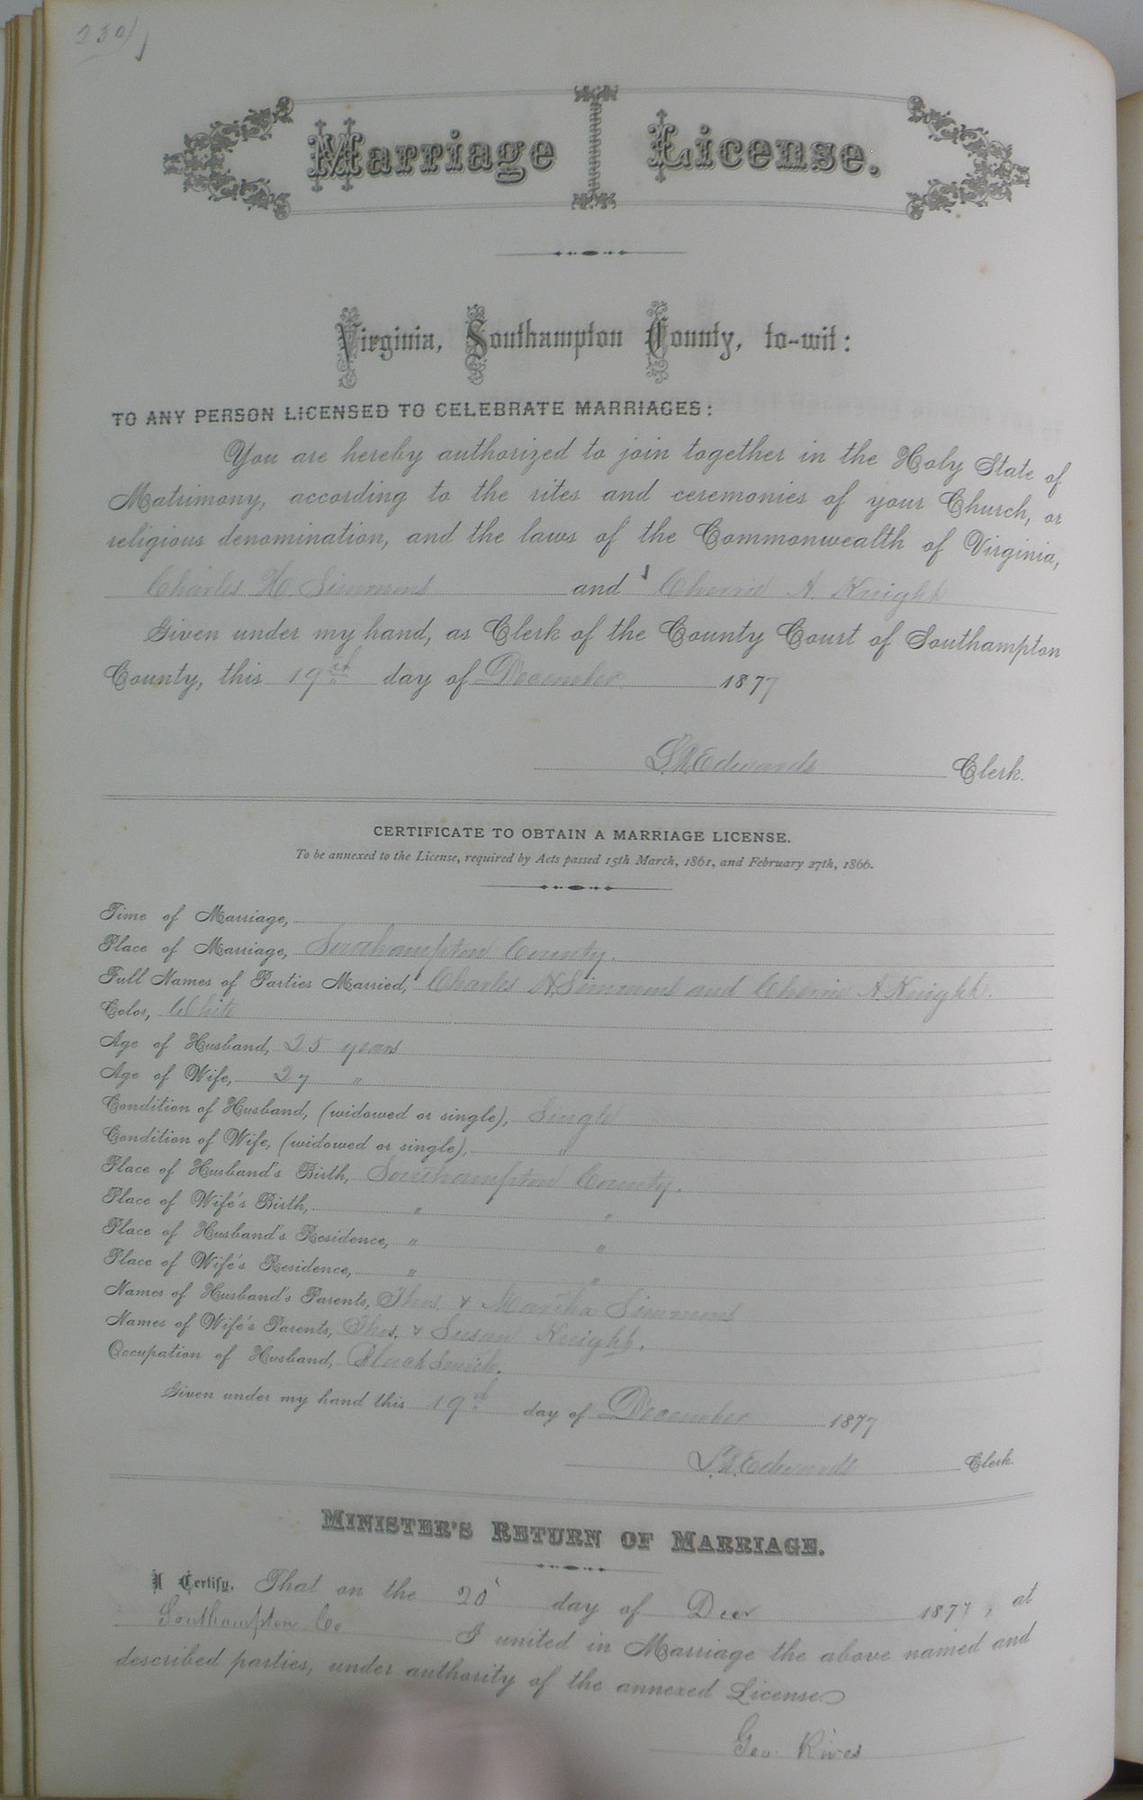 230
Marriage License.
Virginia, Southampton County, to-wit:
TO ANY PERSON LICENSED TO CELEBRATE MARRIAGES:
You are hereby authorized to join together in the Holy State of
Matrimony, according to the rites and ceremonies of your Church, or
religious denomination, and the laws of the Commonwealth of Virginia,
Charles H. Simmons and A. Knight
Given under my hand, as Clerk of the County Court of Southampton
County, this 19th day of December 1877
Edwards Clerk.
CERTIFICATE TO OBTAIN A MARRIAGE LICENSE.
To be annexed to the License, required by Acts passed 15th March, 1861, and February 27th, 1866.
Time of Marriage,
Place of Marriage, Southampton County.
Full Names of Parties Married, Charles H. Simmons and A. Knight.
Color, White
Age of Husband, 25 years
Age of Wife, 27 "
Condition of Husband, (widowed or single), Single
Condition of Wife, (widowed or single), "
Place of Husband's Birth, Southampton County.
Place of Wife's Birth, " "
Place of Husband's Residence, " "
Place of Wife's Residence, " "
Names of Husband's Parents, Thos. & Martha Simmons
Names of Wife's Parents, Thos. & Susan Knight.
Occupation of Husband, Blacksmith.
Given under my hand this 19th day of December 1877
Edwards Clerk.
MINISTER'S RETURN OF MARRIAGE.
I Certify, That on the 20 day of Decr 1877, at
Southampton Co I united in Marriage the above named and
described parties, under authority of the annexed License
Geo. Rives